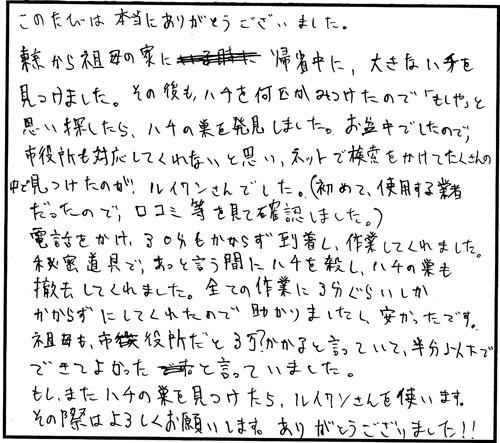 このたびは本当にありがとうございました。
東京から祖母の家に 帰省中に、大きないチを
見つけました。その後も、ハチを何匹かみつけたので「もしや」と
思い探したら、ハチの巣を発見しました。お盆中でしたので、
市役所も対応してくれないと思い、ネットで検索をかけてたくさんの
中で見つけたのが、ルイワンさんでした。(初めて、使用する業者
だったので、口コミ等を見て確認しました。)
電話をかけ、30分もかからず到着し、作業してくれました。
秘密道具で、あっと言う間にハチを殺し、ハチの巣も
撤去してくれました。全ての作業に3分ぐらいしか
かからずにしてくれたので助かりましたし、安かったです。
祖母も、市役所だと3万?かかると言っていて、半分以下で
できてよかったと言っていました。
もし、またハチの巣を見つけたら、ルイワンさんを使います。
その際はよろしくお願いします。ありがとうございました!!